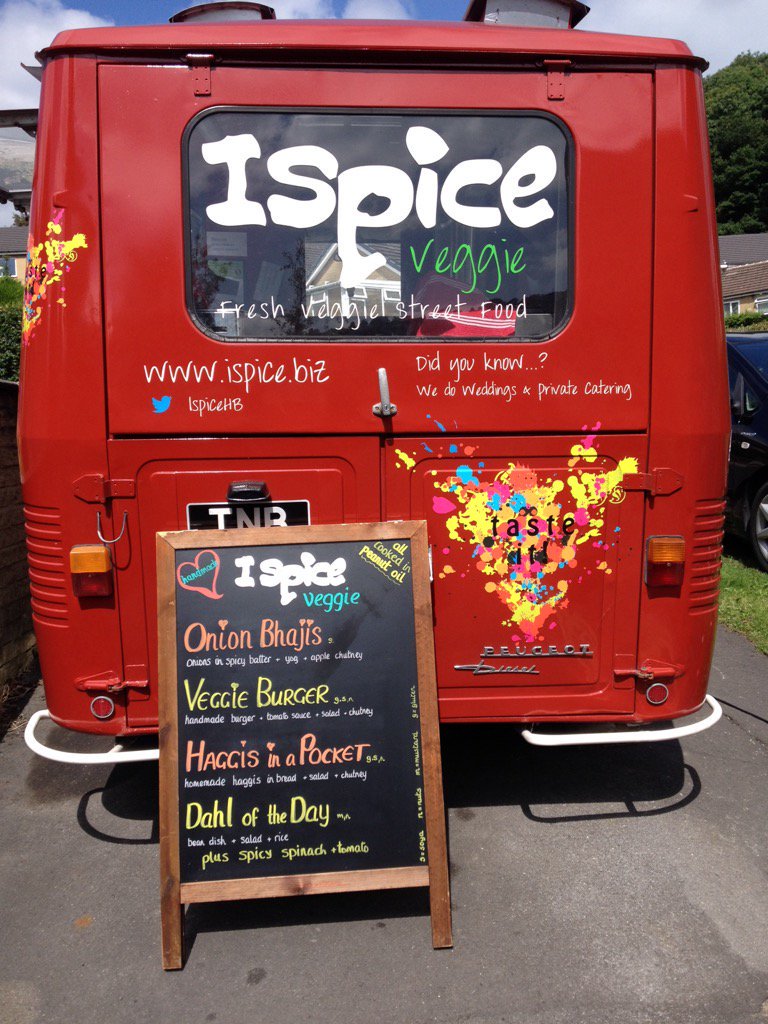 Ispice
Veggie
Fresh Veggie Street Food
www.ispice.biz
IspiceHB
Did you know...?
We do Weddings & Private Catering
taste
it!
TNR
PEUGEOT
Diesel
handmade
I spice
veggie
all
cooked in
Peanut oil
Onion Bhajis g.
onions in spicy batter + yog + apple chutney
Veggie Burger g.s.n.
handmade burger + tomato sauce + salad + chutney
Haggis in a Pocket g.s.n.
homemade haggis in bread + salad + chutney
Dahl of the Day m,n.
bean dish + salad + rice
plus spicy spinach + tomato
s = soya n = nuts m = mustard g = gluten